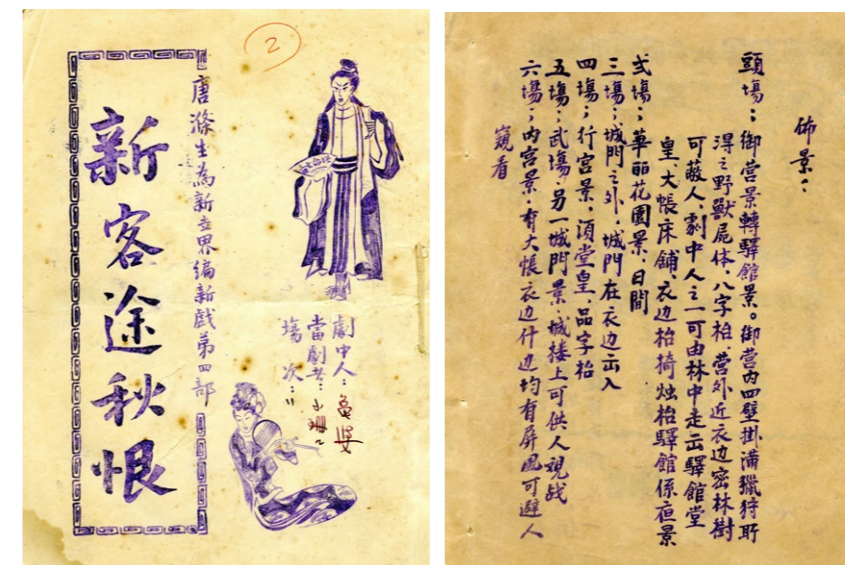 2
唐滌生為新世界编新戲第四部
新客途秋恨
劇中人：
當劇者：
場次：
佈景：
頭塲；御营景轉驛館景。御营内四壁掛满獵狩所
得之野獸屍体，八字枱，营外近衣边密林樹
可蔽人，劇中人之一可由林中走出驛館堂
皇，大帳床舖，衣边枱椅烛枱驛館係夜景
弍塲；華丽花園景，日間
三塲；城門之外，城門在衣边出入
四塲；行宫景，須堂皇，品字枱
五塲；武塲，另一城門景，城楼上可供人观战
六塲；内宫景，有大帳衣边什边均有屏風可避人
窺看